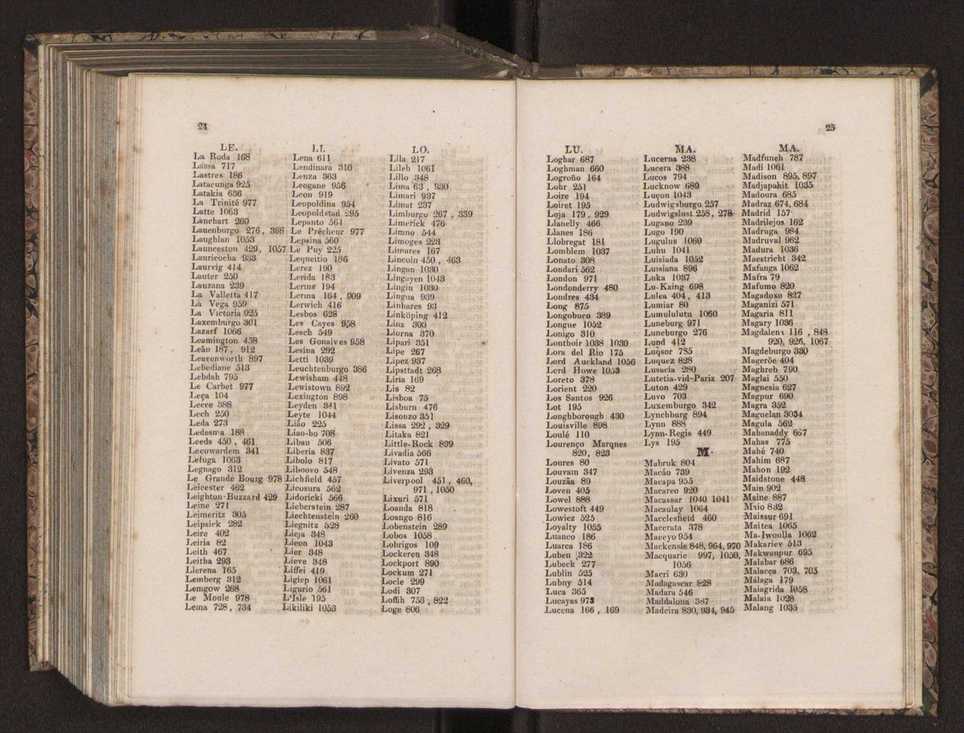 24
LE.
La Roda 168
Lassa 717
Lastres 186
Latacunga 925
Latakia 636
La Trinité 977
Latte 1063
Lauchart 260
Lauenburgo 276, 388
Laughlan 1053
Launceston 429, 1057
Lauricocha 933
Laurvig 414
Lauter 250
Lauzana 239
La Valletta 417
La Vega 959
La Victoria 925
Laxemburgo 301
Lazarf 1066
Leamington 458
Leão 187, 912
Leavenworth 897
Lebediane 513
Lebdah 795
Le Carbet 977
Leça 104
Lecce 388
Lech 250
Leda 273
Ledesma 188
Leeds 450, 461
Leeowardem 341
Lefuga 1063
Legnago 312
Le Grande Bourg 978
Leicester 462
Leighton-Buzzard 429
Leine 271
Leimeritz 305
Leipsick 282
Leire 402
Leiria 82
Leith 467
Leitha 293
Llerena 165
Lemberg 312
Lemgow 268
Le Moule 978
Lema 728, 734
LI.
Lena 611
Lendinara 316
Lenza 363
Leogane 956
Leon 919
Leopoldina 954
Leopoldstad 295
Lepanto 561
Le Prêcheur 977
Lepsina 560
Le Puy 225
Lequeitio 186
Lerez 190
Lerida 183
Lerins 194
Lerna 164, 909
Lerwich 416
Lesbos 628
Les Cayes 958
Lesch 549
Les Gonaives 958
Lesina 292
Letti 1039
Leuchtenburgo 386
Lewisham 448
Lewistown 892
Lexington 898
Leyden 341
Leyte 1044
Lião 225
Liao-ho 708
Libau 506
Liberia 837
Libolo 817
Liboovo 548
Lichfield 457
Licosura 562
Lidoricki 566
Lieberstein 287
Liechtenstein 260
Liegnitz 528
Lieja 348
Lieon 1043
Lier 348
Lieve 348
Liffei 419
Ligiep 1061
Ligurio 561
L'Isle 195
Likiliki 1053
LO.
Lila 217
Lileb 1061
Lillo 348
Lima 63, 930
Limari 937
Limat 237
Limburgo 267, 339
Limerick 476
Limno 544
Limoges 223
Limares 167
Lincoln 450, 463
Lingan 1030
Lingayen 1043
Lingin 1030
Lingua 939
Linhares 93
Linköping 412
Linz 300
Liorna 370
Lipari 351
Lipe 267
Lipez 937
Lipstadt 268
Liria 169
Lis 82
Lisboa 75
Lisburn 476
Lisonzo 351
Lissa 292, 329
Litaka 821
Little-Rock 899
Livadia 566
Livato 571
Livenza 293
Liverpool 451, 460,
971, 1050
Lixuri 571
Loanda 818
Loango 816
Lobenstein 289
Lobos 1058
Lobrigos 109
Lockeren 348
Lockport 890
Lockum 271
Locle 299
Lodi 307
Loffih 753, 822
Loge 806
25
LU.
Loghar 687
Loghman 660
Logroño 164
Lohr 251
Loire 194
Loiret 195
Loja 179, 929
Llanelly 466
Llanes 186
Llobregat 181
Lomblem 1037
Lonato 308
Londari 562
London 971
Londonderry 480
Londres 434
Long 875
Longoburo 389
Longue 1052
Lonigo 310
Lonthoir 1038 1030
Lora del Rio 175
Lord Auckland 1056
Lord Howe 1053
Loreto 378
Lorient 220
Los Santos 926
Lot 195
Longhborough 430
Louisville 898
Loulé 110
Lourenço Marques
820, 823
Loures 80
Louvain 347
Louzãa 89
Loven 405
Lowel 888
Lowestoft 449
Lowiez 525
Loyalty 1055
Luanco 186
Luarca 186
Luben 322
Lubeck 277
Lublin 525
Lubny 514
Luca 365
Lucayas 973
Lucena 166, 169
MA.
Lucerna 238
Lucera 388
Lucos 794
Lucknow 689
Luçon 1043
Ludwigsburgo 257
Ludwigslust 258, 278
Lugano 239
Lugo 190
Lugulus 1060
Luhu 1041
Luisiada 1052
Luisiana 896
Luka 1037
Lu-Kaing 698
Lulea 404, 413
Lumiar 80
Lumululutu 1060
Luneburg 971
Luneburgo 276
Lund 412
Luqsor 785
Luquez 828
Lusacia 280
Lutetia-vid-Pariz 207
Luton 429
Luvo 703
Luxemburgo 342
Lynchburg 894
Lynn 888
Lynn-Regis 449
Lys 195
M.
Mabruk 804
Macão 739
Macapa 955
Macareo 920
Macassar 1040 1041
Macaulay 1064
Macclesfield 460
Macerata 378
Maceyo 954
Mackensie 848, 964, 970
Macquarie 997, 1050,
1056
Macri 630
Madagascar 828
Madara 546
Maddaloua 387
Madeira 830, 934, 945
MA.
Madfuneh 787
Madi 1061
Madison 895, 897
Madjapahit 1035
Madoura 685
Madraz 674, 684
Madrid 157
Madrilejos 162
Madruga 984
Madruval 962
Madura 1036
Maestricht 342
Mafanga 1062
Mafra 79
Mafumo 820
Magadoxo 827
Maganizi 571
Magaria 811
Magary 1036
Magdalena 116, 848,
920, 926, 1067
Magdeburgo 330
Magerõe 404
Maghreb 790
Maglai 550
Magnesia 627
Magpur 690
Magra 352
Maguelan 3034
Magula 562
Mabanaddy 667
Mahas 775
Mahé 740
Mahim 687
Mahon 192
Maidstone 448
Main 902
Maine 887
Maio 832
Maissur 691
Maitea 1065
Ma-Iwoolla 1062
Makariev 513
Makwanpur 695
Malabar 686
Malacca 703, 705
Málaga 179
Malagrida 1058
Malaia 1028
Malang 1035